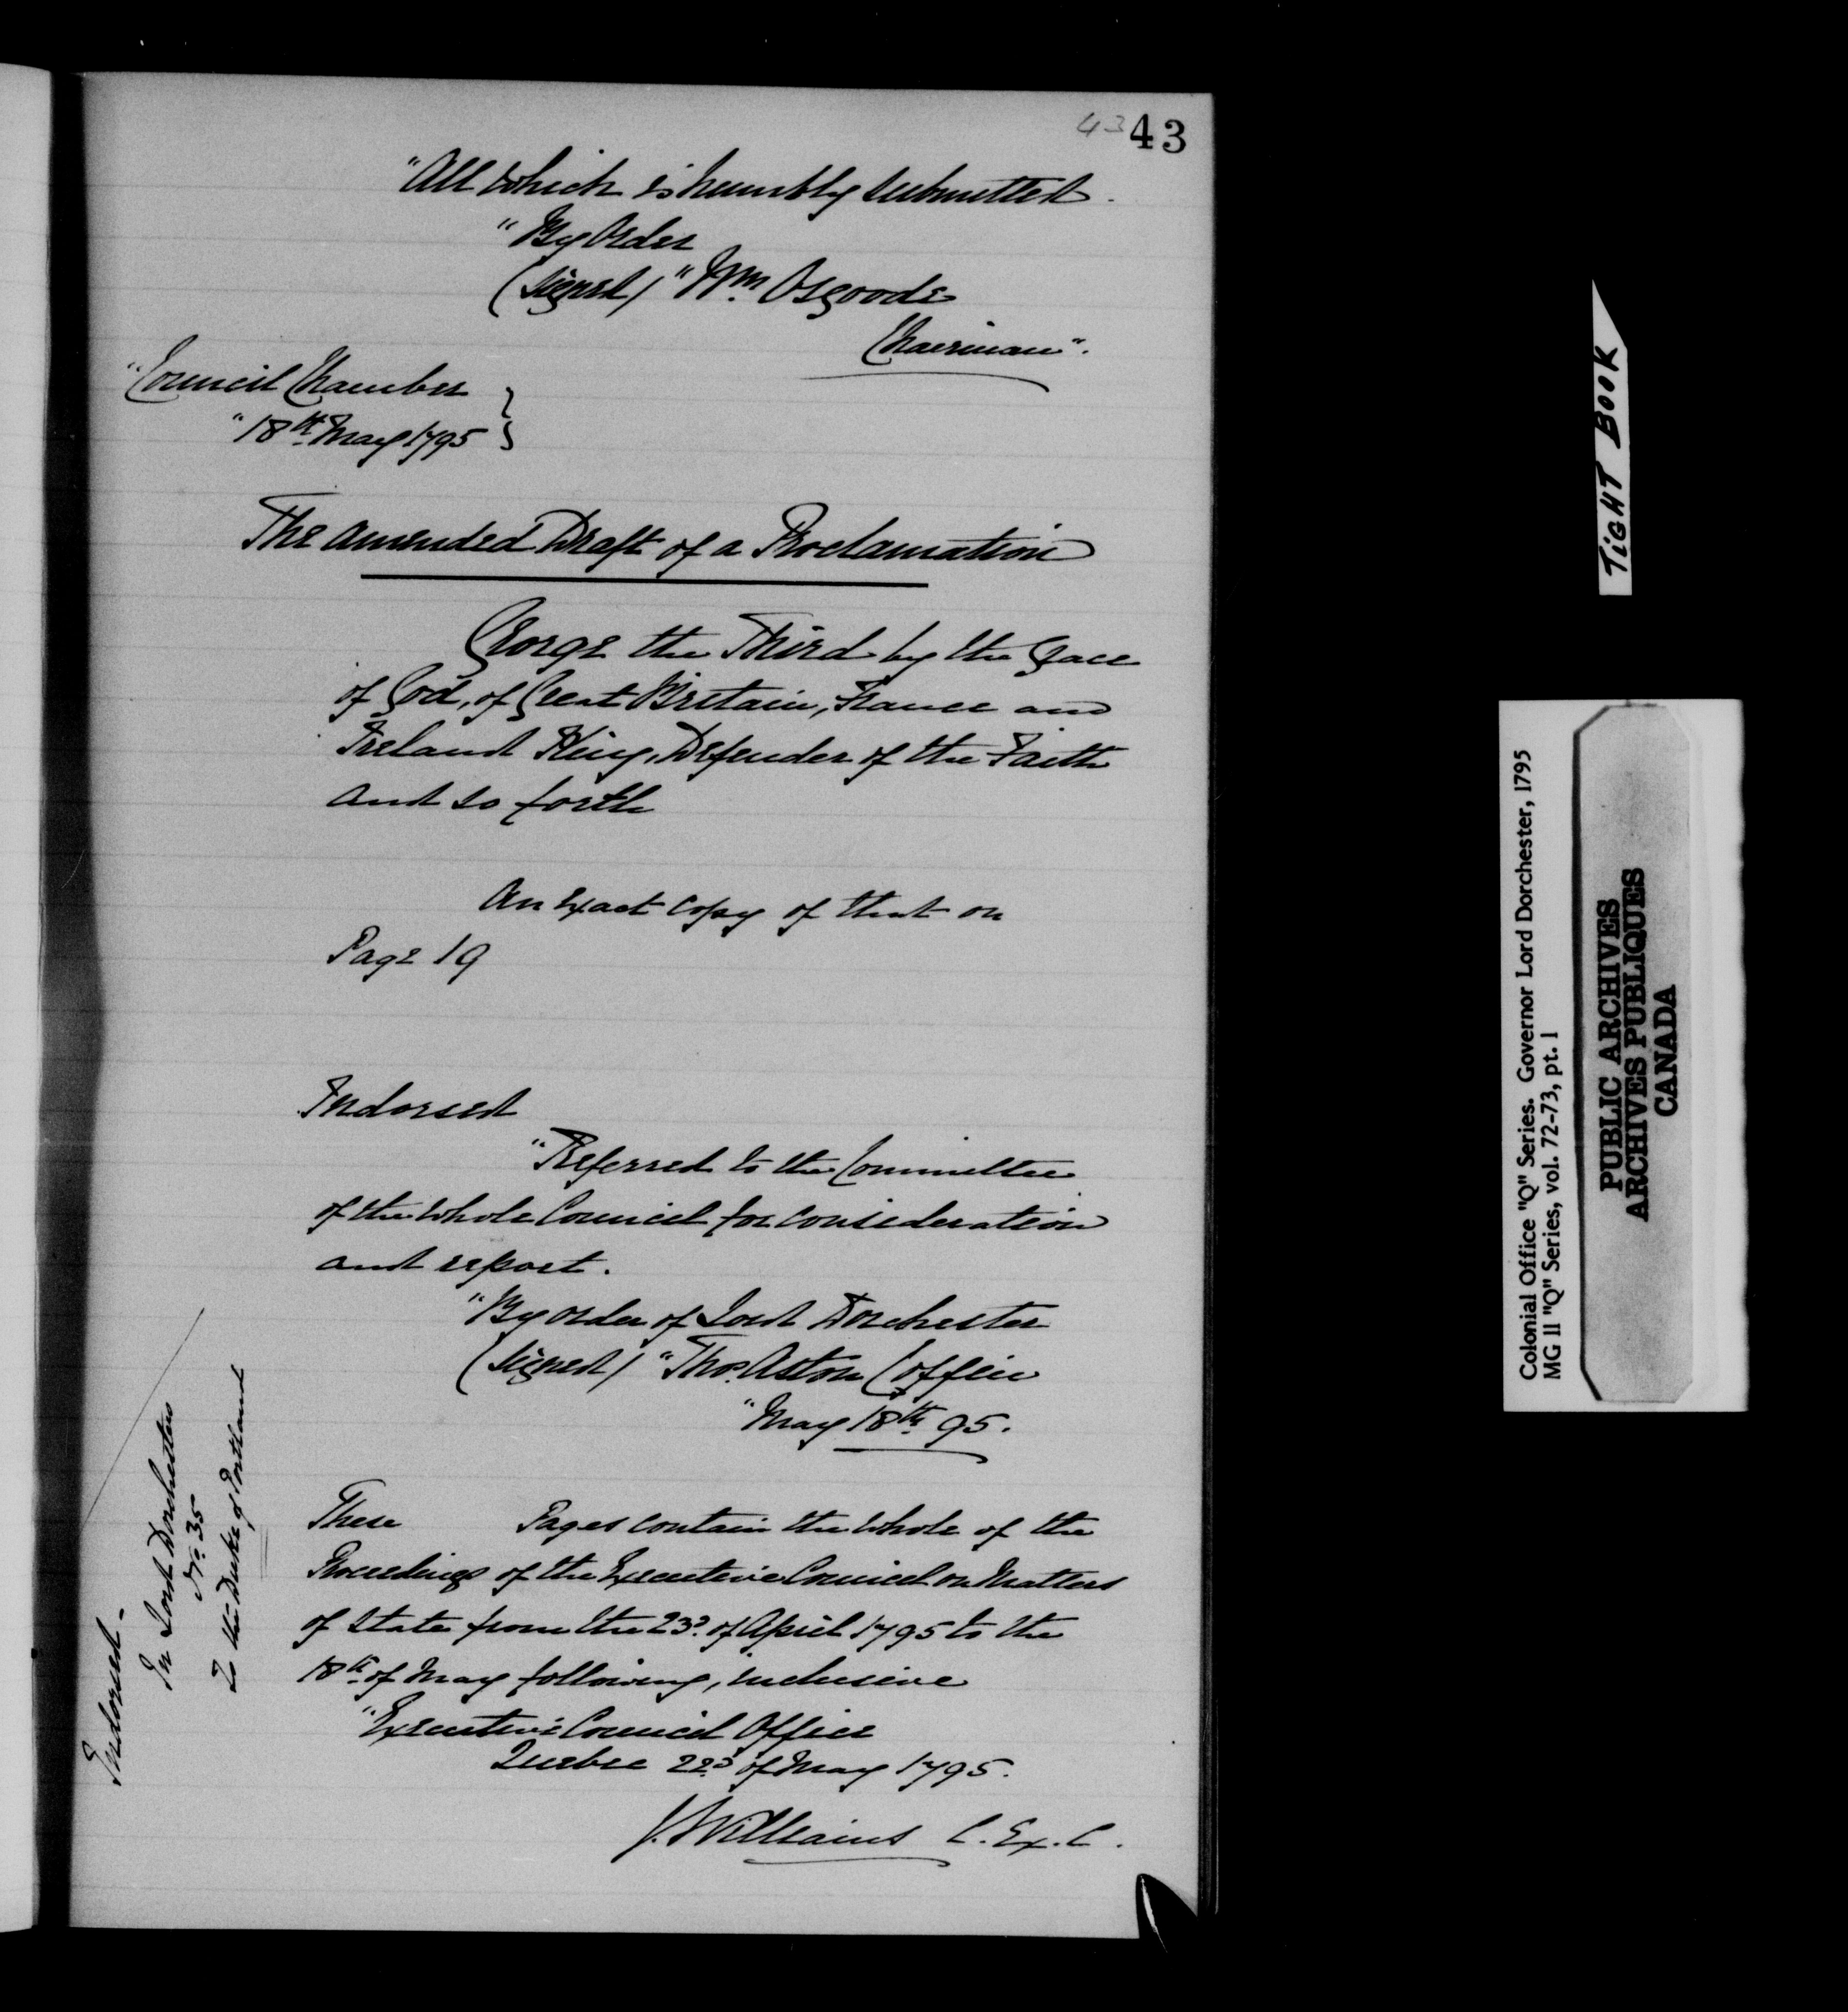 43 43
"All which is humbly submitted.
"By Order
(signed) "Wm. Osgoode
Chairman".
"Council Chamber
"18th May 1795 }
The amended Draft of a Proclamation
George the Third by the Grace
of God, of Great Britain, France and
Ireland King, Defender of the Faith
and so forth
An exact copy of that on
Page 19
Indorsed
"Referred to the Committee
of the whole Council for consideration
and report.
"By order of Lord Dorchester
(signed) "Thos. Aston Coffin
"May 18th 95.
These Pages contain the whole of the
Proceedings of the Executive Council on Matters
of State from the 23d. of April 1795 to the
18th of May following, inclusive
"Executive Council Office
Quebec 22d of May 1795.
J. Williams C. Ex. C.
Indorsed-
In Lord Dorchesters
No. 35
To the Duke of Portland
TIGHT BOOK
Colonial Office "Q" Series. Governor Lord Dorchester, 1795
MG 11 "Q" Series, vol. 72-73, pt. 1
PUBLIC ARCHIVES
ARCHIVES PUBLIQUES
CANADA